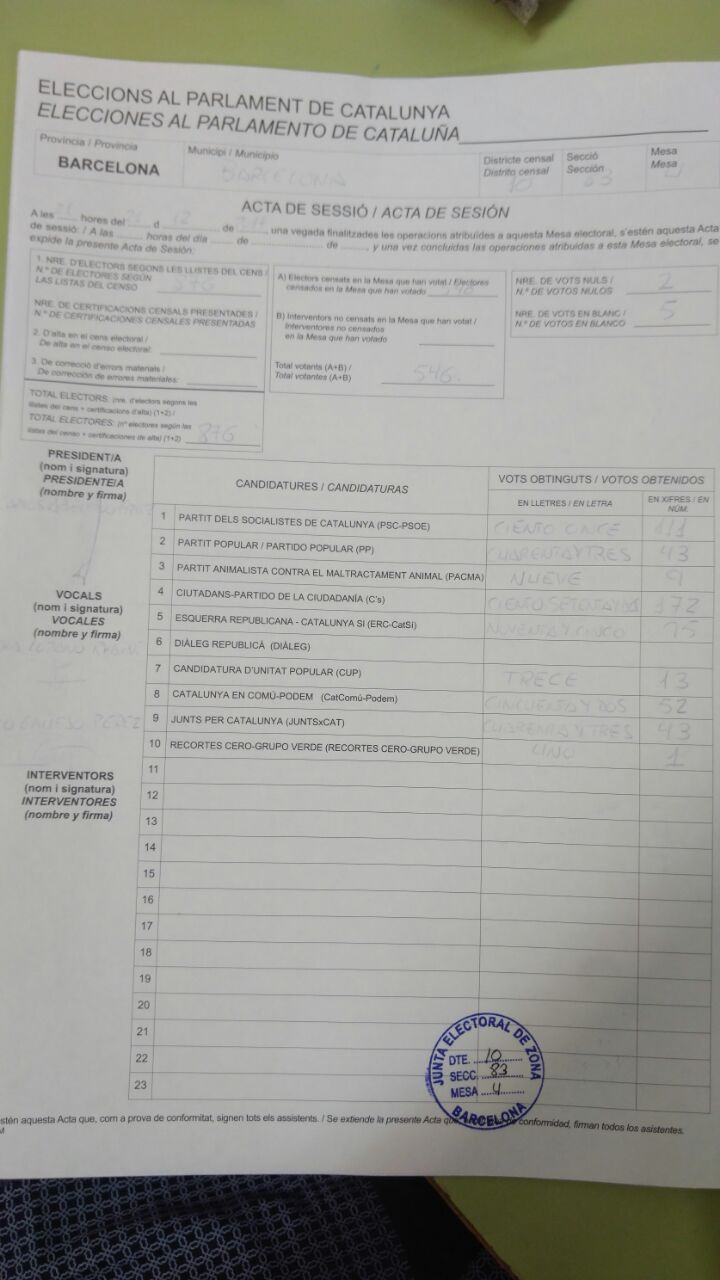 ELECCIONS AL PARLAMENT DE CATALUNYA
ELECCIONES AL PARLAMENTO DE CATALUÑA
Província / Provincia
BARCELONA
Municipi / Municipio
BARCELONA
Districte censal
Distrito censal
10
Secció
Sección
83
Mesa
Mesa
ACTA DE SESSIÓ / ACTA DE SESIÓN
A les hores del d 12 de , una vegada finalitzades les operacions atribuïdes a aquesta Mesa electoral, s'estén aquesta Acta
de sessió: / A las horas del día de de , y una vez concluidas las operaciones atribuidas a esta Mesa electoral, se
expide la presente Acta de Sesión:
1. NRE. D'ELECTORS SEGONS LES LLISTES DEL CENS /
N.º DE ELECTORES SEGÚN
LAS LISTAS DEL CENSO 876
NRE. DE CERTIFICACIONS CENSALS PRESENTADES /
N.º DE CERTIFICACIONES CENSALES PRESENTADAS
2. D'alta en el cens electoral /
De alta en el censo electoral:
3. De correcció d'errors materials /
De corrección de errores materiales:
TOTAL ELECTORS: (nre. d'electors segons les
llistes del cens + certificacions d'alta) (1+2) /
TOTAL ELECTORES: (nº electores según las
listas del censo + certificaciones de alta) (1+2) 876
A) Electors censats en la Mesa que han votat / Electores
censados en la Mesa que han votado
B) Interventors no censats en la Mesa que han votat /
Interventores no censados
en la Mesa que han votado
Total votants (A+B) /
Total votantes (A+B) 546
NRE. DE VOTS NULS /
N.º DE VOTOS NULOS 2
NRE. DE VOTS EN BLANC /
N.º DE VOTOS EN BLANCO 5
PRESIDENT/A
(nom i signatura)
PRESIDENTE/A
(nombre y firma)
VOCALS
(nom i signatura)
VOCALES
(nombre y firma)
PEREZ
INTERVENTORS
(nom i signatura)
INTERVENTORES
(nombre y firma)
CANDIDATURES / CANDIDATURAS
VOTS OBTINGUTS / VOTOS OBTENIDOS
EN LLETRES / EN LETRA
EN XIFRES / EN NÚM.
1 PARTIT DELS SOCIALISTES DE CATALUNYA (PSC-PSOE) CIENTO ONCE 111
2 PARTIT POPULAR / PARTIDO POPULAR (PP) CUARENTA Y TRES 43
3 PARTIT ANIMALISTA CONTRA EL MALTRACTAMENT ANIMAL (PACMA) NUEVE 9
4 CIUTADANS-PARTIDO DE LA CIUDADANÍA (C's) CIENTO SETENTA Y DOS 172
5 ESQUERRA REPUBLICANA - CATALUNYA SI (ERC-CatSí) NOVENTA Y CINCO 95
6 DIÀLEG REPUBLICÀ (DIÀLEG)
7 CANDIDATURA D'UNITAT POPULAR (CUP) TRECE 13
8 CATALUNYA EN COMÚ-PODEM (CatComú-Podem) CINCUENTA Y DOS 52
9 JUNTS PER CATALUNYA (JUNTSxCAT) CUARENTA Y TRES 43
10 RECORTES CERO-GRUPO VERDE (RECORTES CERO-GRUPO VERDE) UNO 1
11
12
13
14
15
16
17
18
19
20
21
22
23
JUNTA ELECTORAL DE ZONA
DTE. 10
SECC. 83
MESA 4
BARCELONA
stén aquesta Acta que, com a prova de conformitat, signen tots els assistents. / Se extiende la presente Acta que conformidad, firman todos los asistentes.